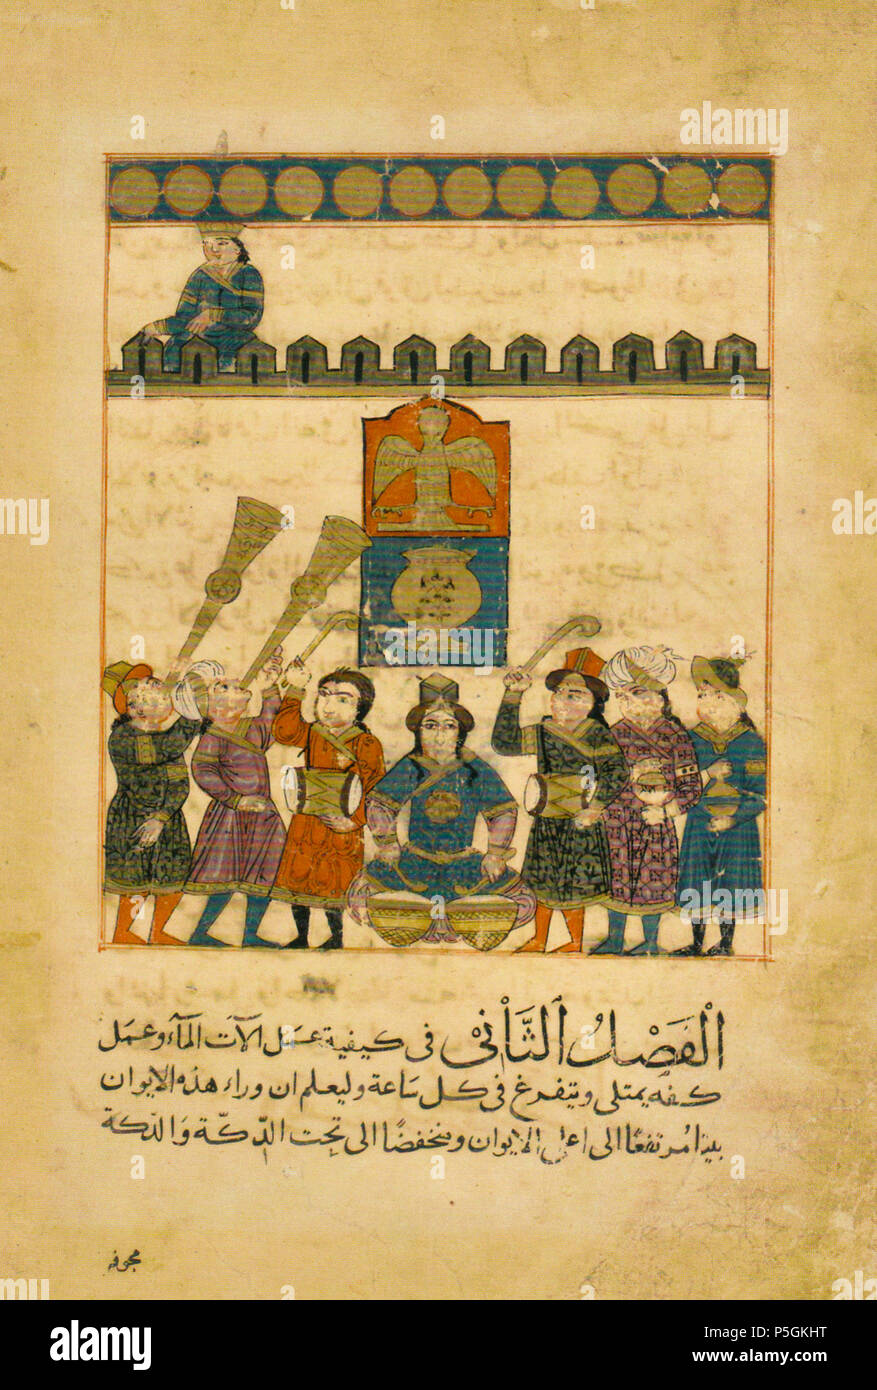 الْفَصْلُ الثَّانِي في كيفية عمل الآت المآء وعمل
كفه يمتلى ويتفرغ في كل ساعة وليعلم ان وراء هذه الايوان
بيتا مرتفعا الى اعلى الايوان ومنخفضًا الى تحت الدِّكّة وَالدّكة
مجوفه
a
alamy
alamy stock photo
P5GKHT
www.alamy.com